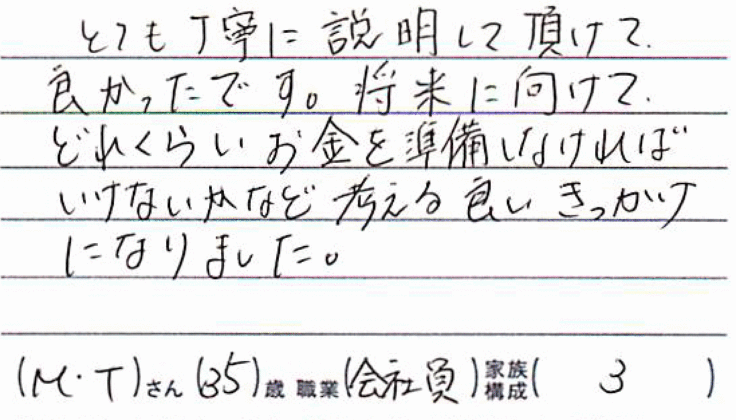 とても丁寧に説明して頂けて、
良かったです。将来に向けて、
どれくらいお金を準備しなければ
いけないかなど考える良いきっかけ
になりました。
(M・T)さん(35)歳 職業(会社員)家族構成( 3 )